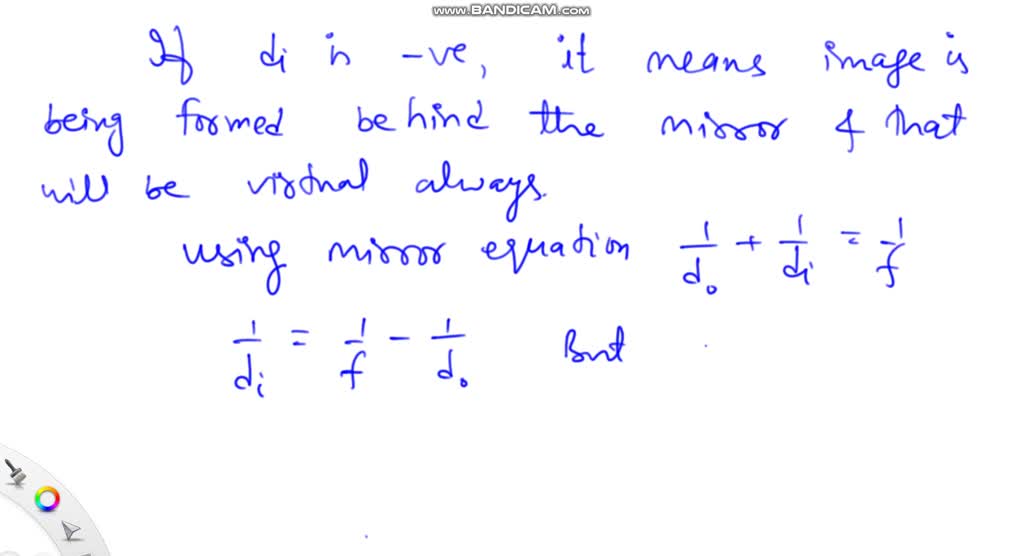 www.BANDICAM.com
If di is -ve, it means image is
being formed behind the mirror & that
will be virtual always.
using mirror equation 1/d₀ + 1/di = 1/f
1/di = 1/f - 1/d₀ But